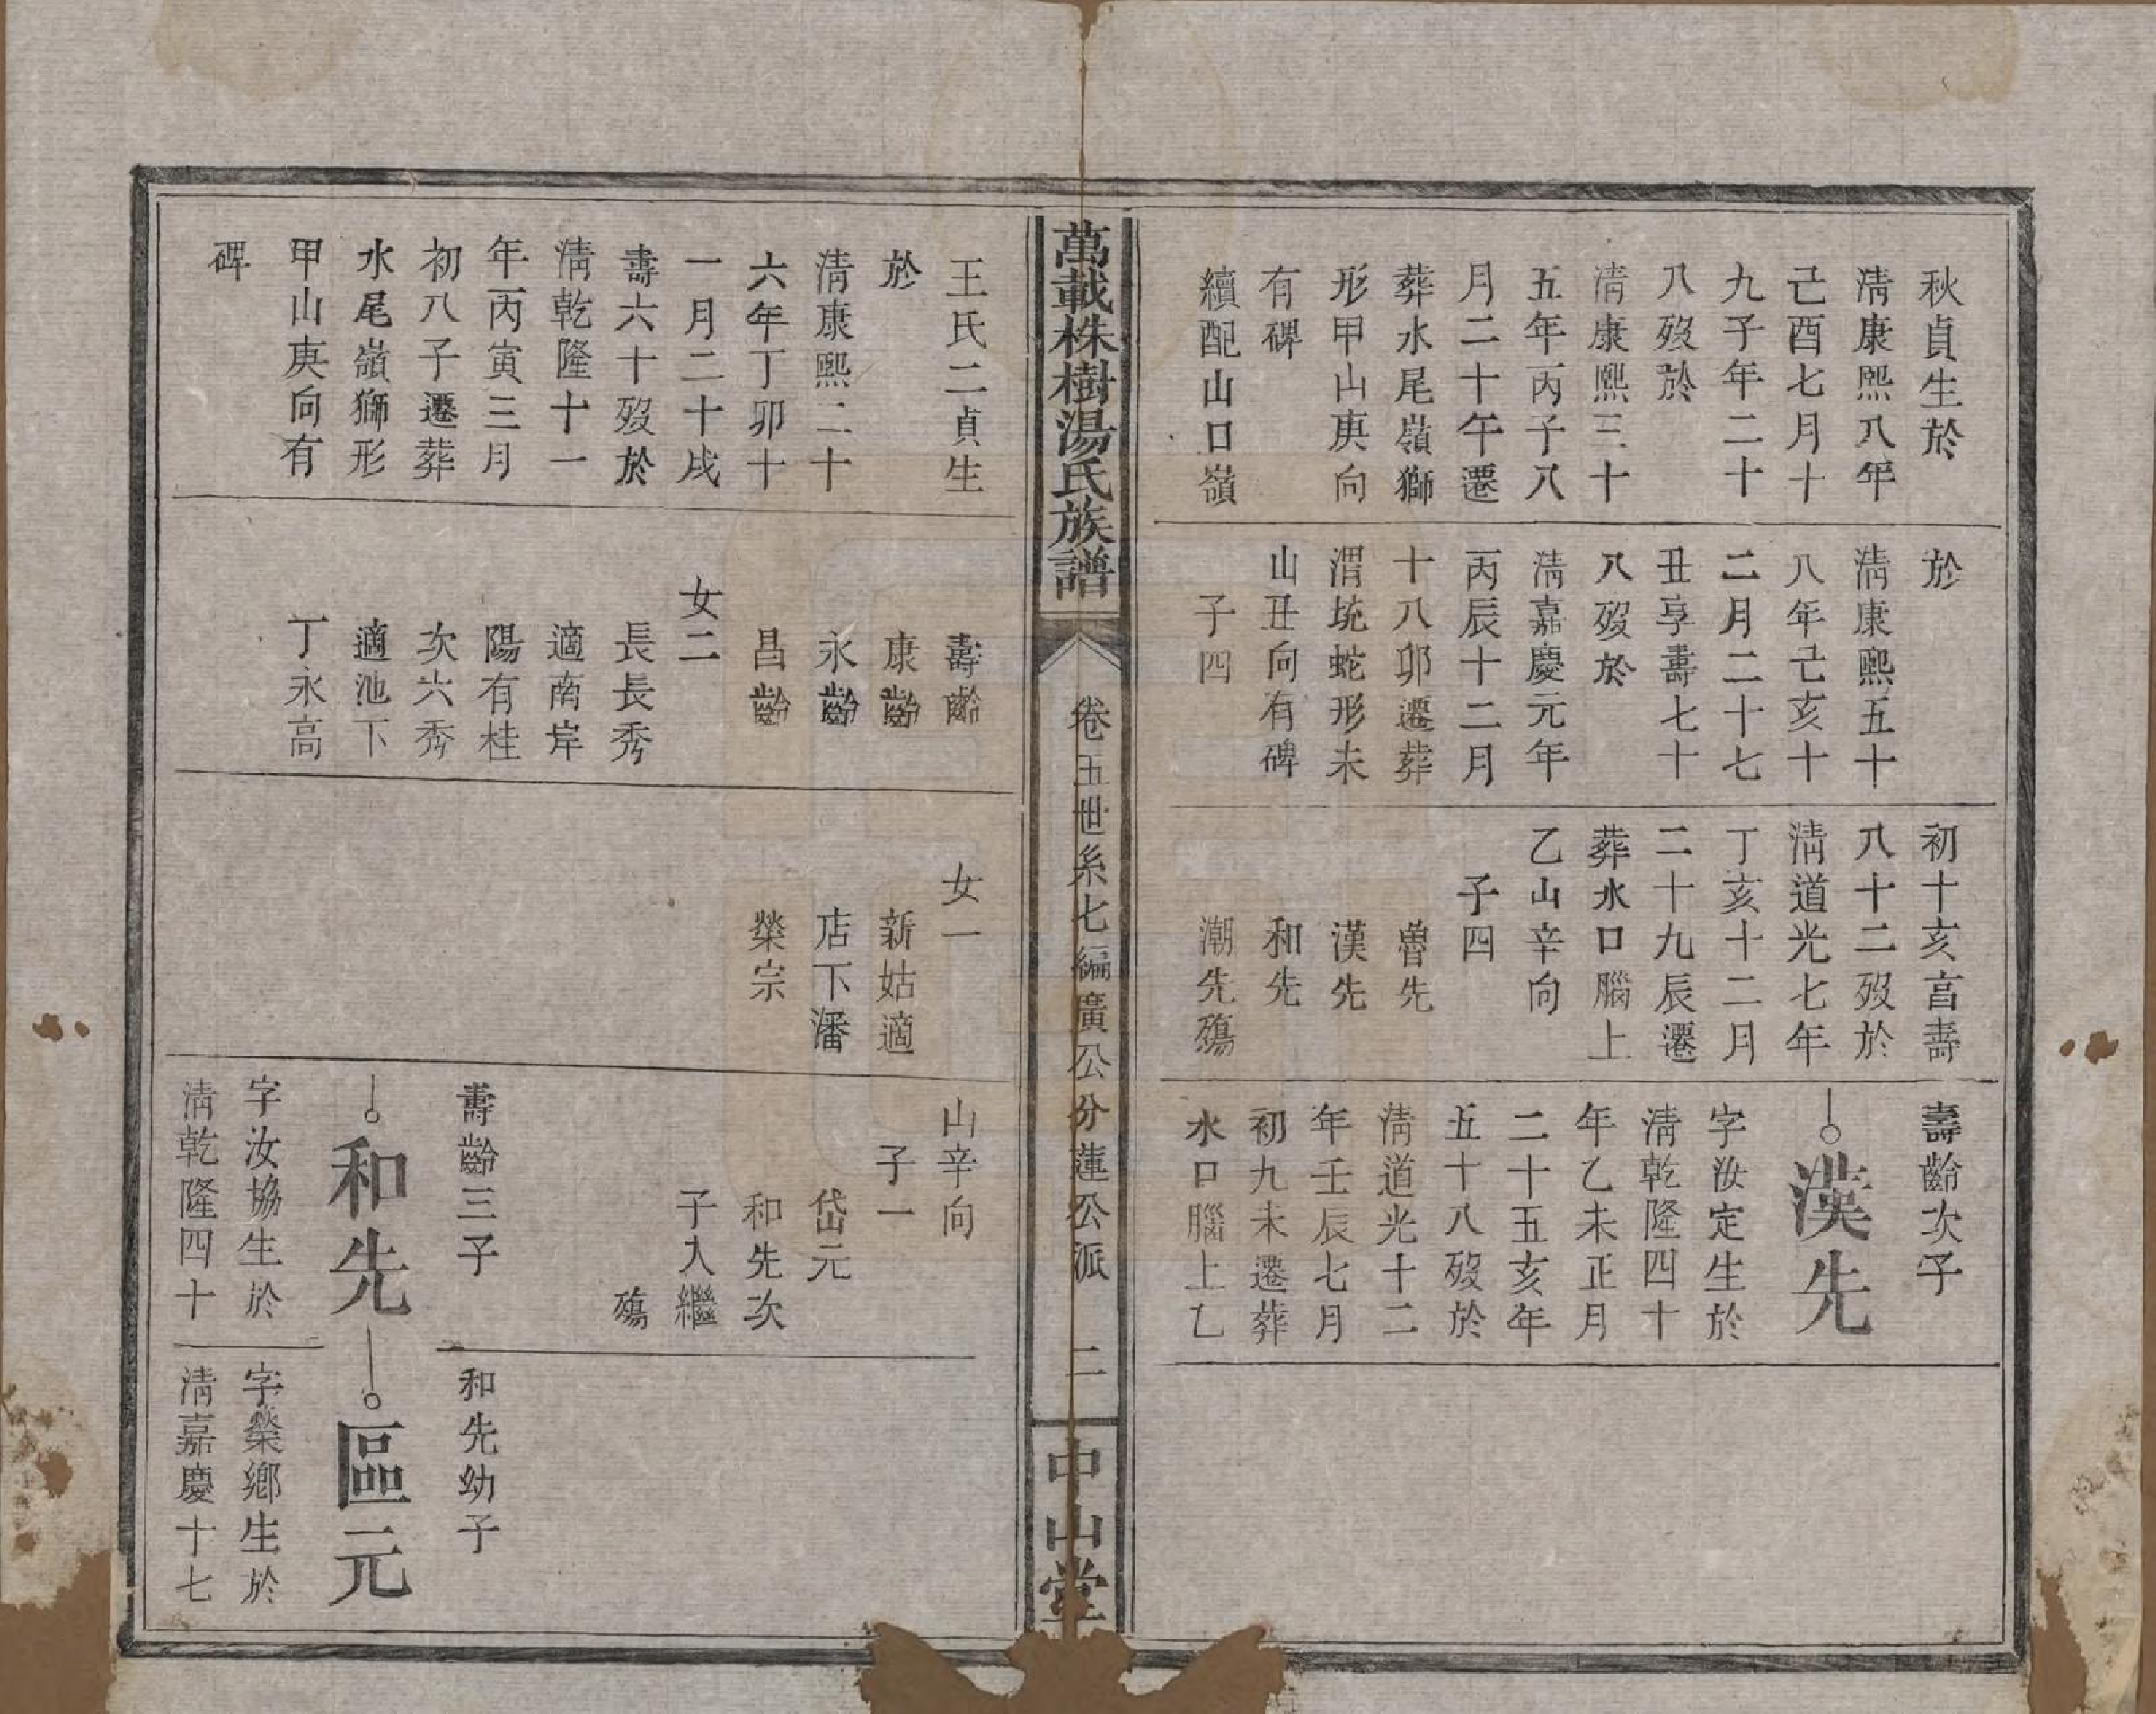 秋貞生於
清康熙八年
己酉七月十
九子年二十
八歿於
清康熙三十
五年丙子八
月二十午遷
葬水尾嶺獅
形甲山庚向
有碑
續配山口嶺
於
清康熙五十
八年己亥十
二月二十七
丑享壽七十
八歿於
清嘉慶元年
丙辰十二月
十八卯遷葬
渭坑蛇形未
山丑向有碑
子四
初十亥亯壽
八十二歿於
清道光七年
丁亥十二月
二十九辰遷
葬水口腦上
乙山辛向
子四
曾先
漢先
和先
潮先殤
壽齡次子
漢先
字汝定生於
清乾隆四十
年乙未正月
二十五亥年
五十八歿於
清道光十二
年壬辰七月
初九未遷葬
水口腦上乙
萬載株樹湯氏族譜
卷五世系七編廣公分蓮公派
二
中山堂
王氏二貞生
於
清康熙二十
六年丁卯十
一月二十戌
壽六十歿於
清乾隆十一
年丙寅三月
初八子遷葬
水尾嶺獅形
甲山庚向有
碑
壽齡
康齡
永齡
昌齡
女二
長長秀
適南岸
陽有桂
次六秀
適池下
丁永高
女一
新姑適
店下潘
榮宗
山辛向
子一
岱元
和先次
子入繼
殤
壽齡三子
和先
字汝協生於
清乾隆四十
和先幼子
區元
字榮鄉生於
清嘉慶十七